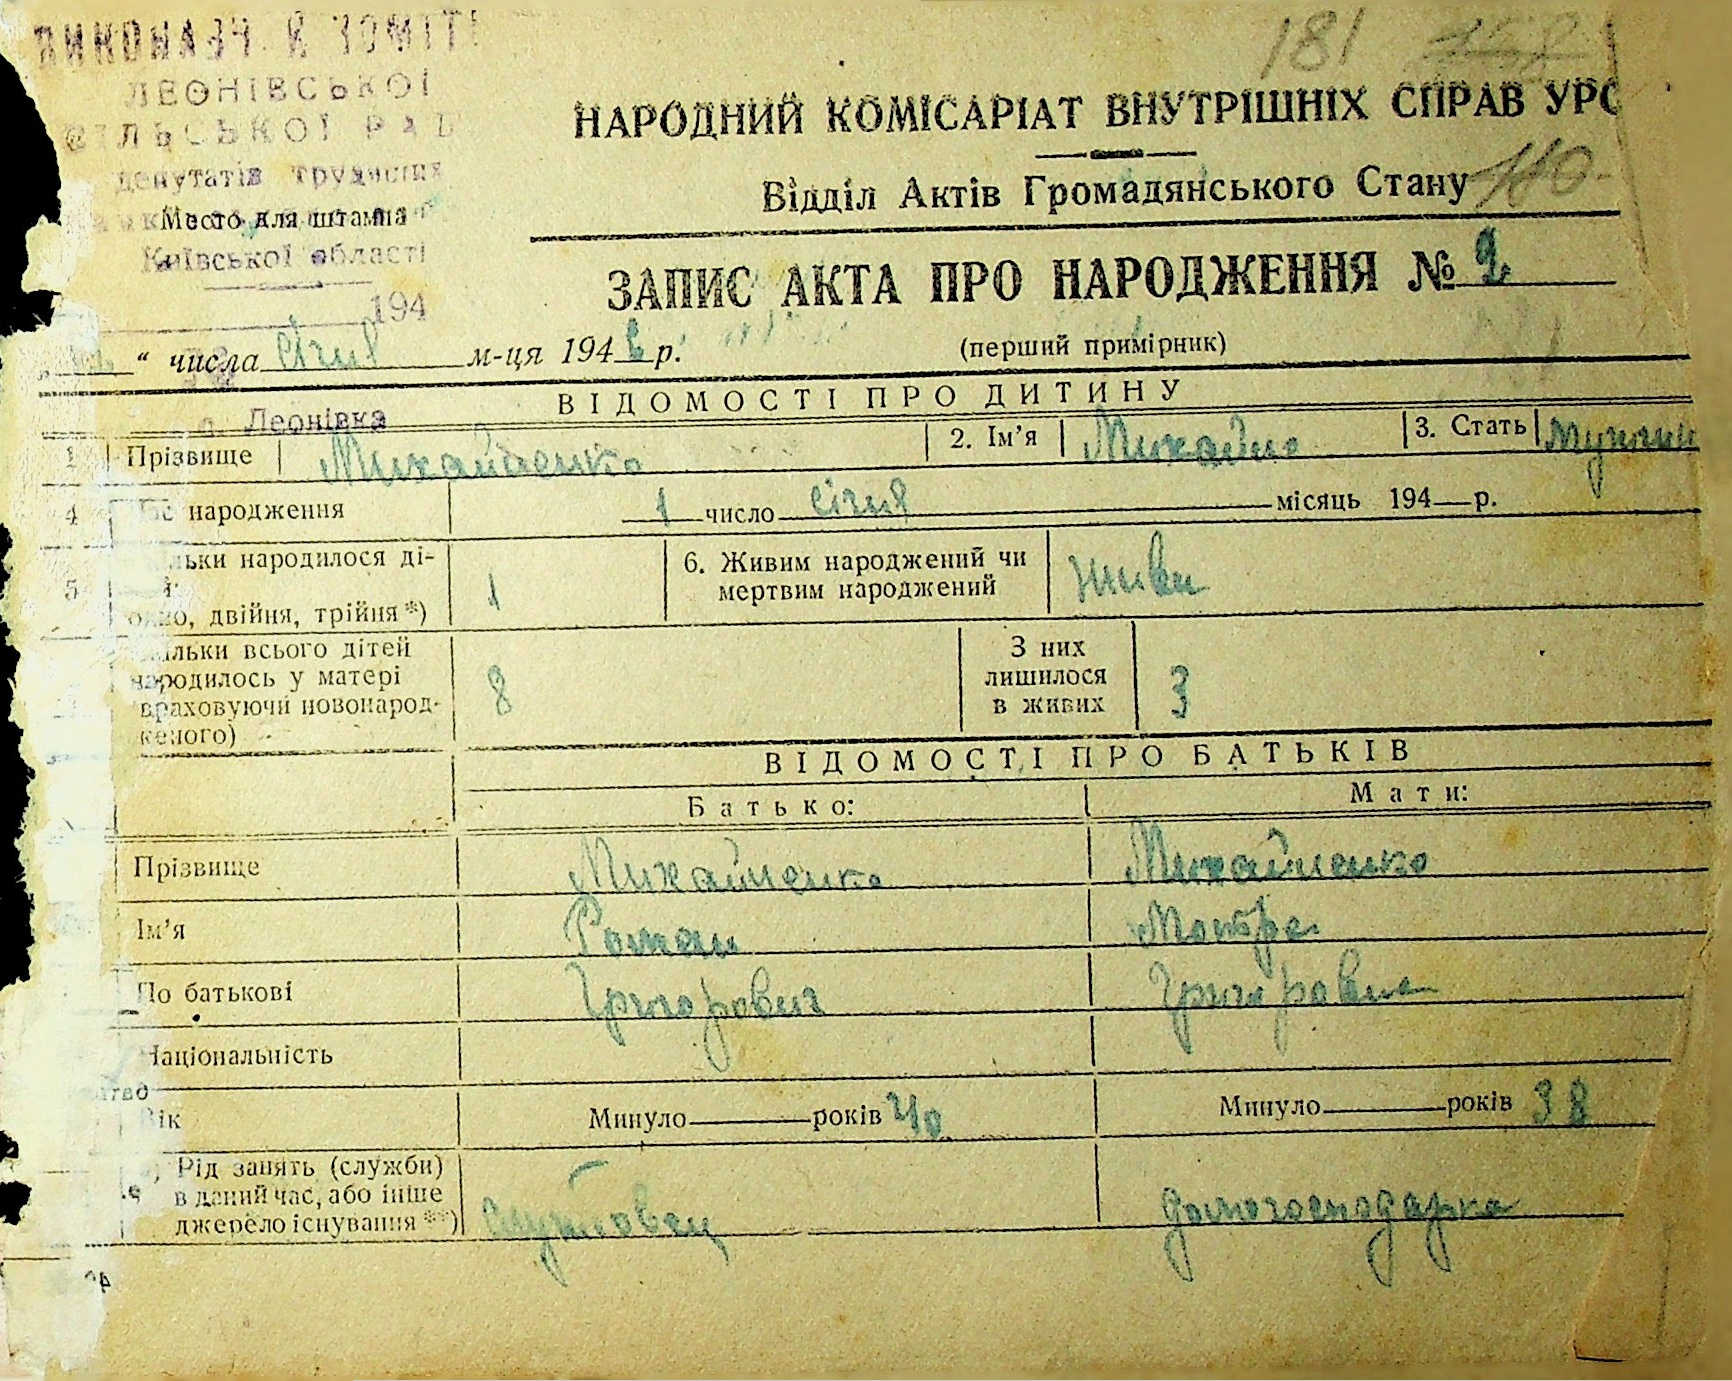 181
ЛЕОНІВСЬКОЇ
СІЛЬСЬКОЇ РАД
депутатів трудящих
Место для штампа
Київської області
194
с. Леонівка
НАРОДНИЙ КОМІСАРІАТ ВНУТРІШНІХ СПРАВ УРС
Відділ Актів Громадянського Стану 110
ЗАПИС АКТА ПРО НАРОДЖЕННЯ № 2
“ числа січня м-ця 194 р.
(перший примірник)
ВІДОМОСТІ ПРО ДИТИНУ
1 Прізвище Михайленко 2. Ім’я Михайло 3. Стать
4 народження 1 число січня місяць 194 р.
5 народилося ді-
одно, двійня, трійня *) 1
6. Живим народжений чи
мертвим народжений живим
всього дітей
народилось у матері
враховуючи новонарод-
женого) 8
З них
лишилося
в живих 3
ВІДОМОСТІ ПРО БАТЬКІВ
Батько: Мати:
Прізвище Михайленко Михайленко
Ім’я Роман Мотря
По батькові Григорович Григоровна
Національність
Вік Минуло років 40 Минуло років 38
Рід занять (служби)
в даний час, або інше
джерело існування **) домогосподарка